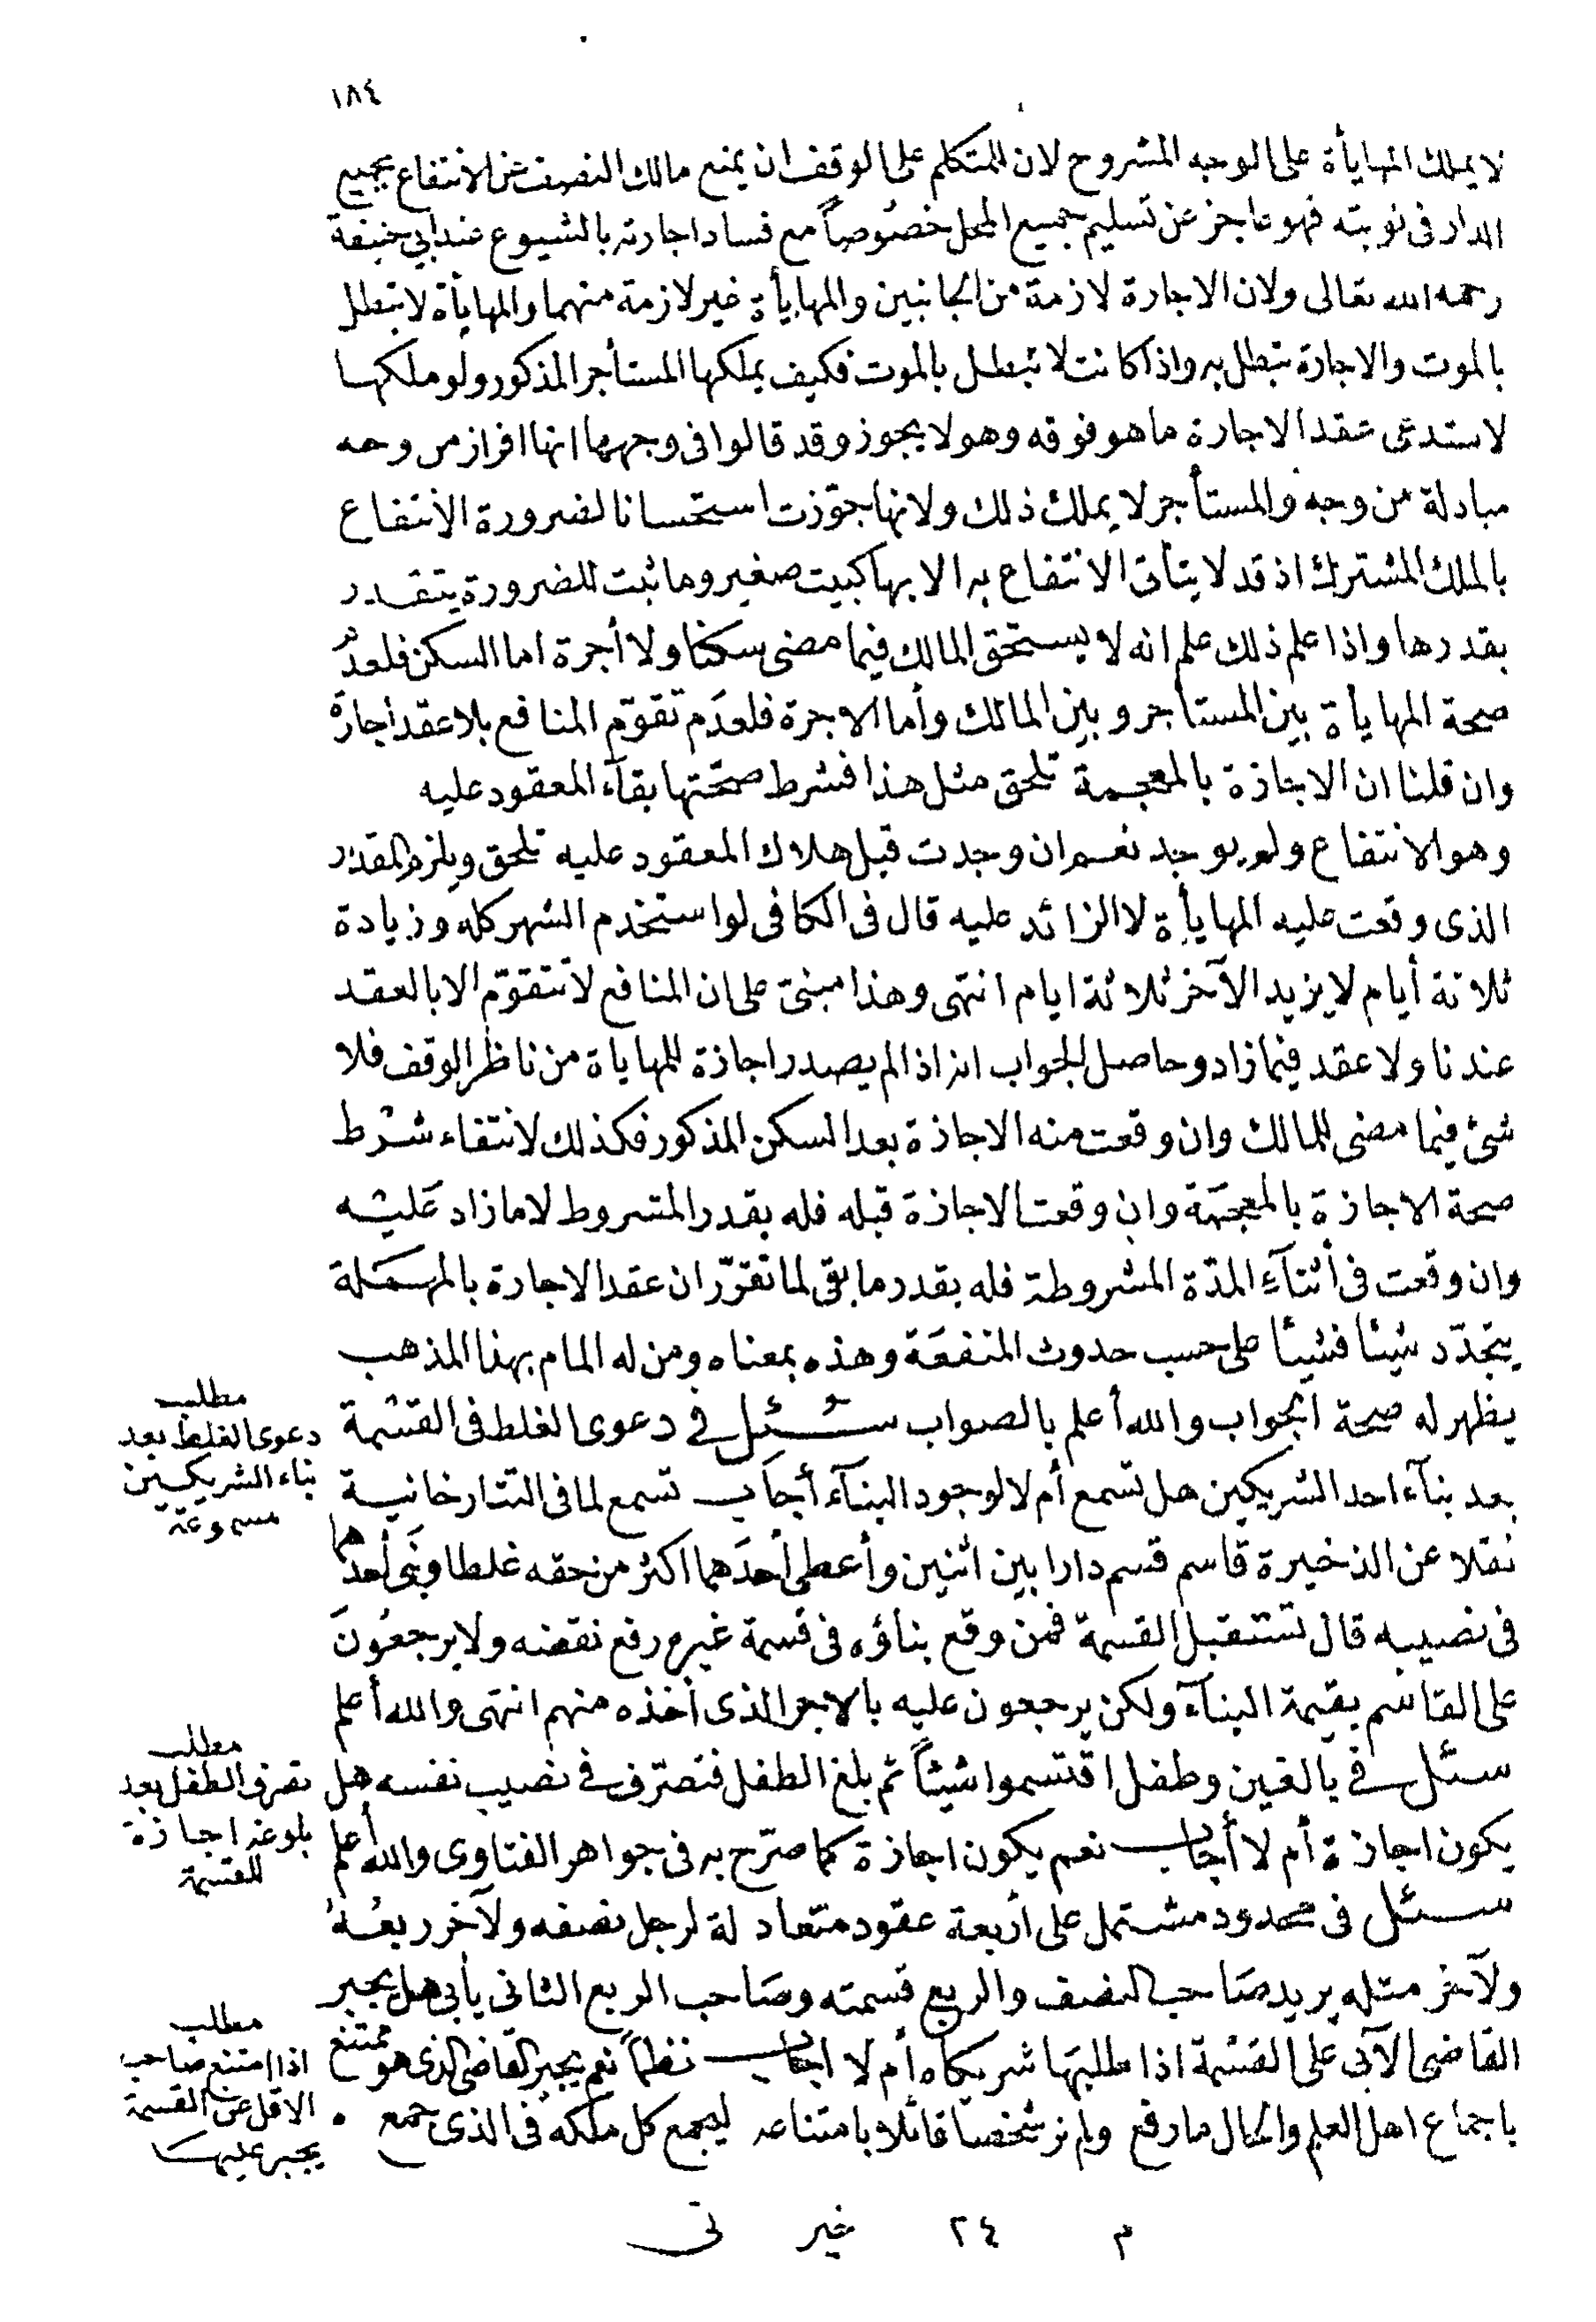 ١٨٤
لا يملك المهايأة على الوجه المشروح لان للمتكلم على الوقف ان يمنع مالك النصف عن الانتفاع بجميع
الدار فى نوبته فهو عاجز عن تسليم جميع المحل خصوصاً مع فساد اجارته بالشيوع عند ابي حنيفة
رحمه الله تعالى ولان الاجارة لازمة من الجانبين والمهايأة غير لازمة منهما والمهايأة لا تبطل
بالموت والاجارة تبطل به واذا كانت لا تبطل بالموت فكيف يملكها المستأجر المذكور ولو ملكها
لاستدعى عقد الاجارة ما هو فوقه وهو لا يجوز وقد قالوا فى وجهها انها افراز من وجه
مبادلة من وجه والمستأجر لا يملك ذلك ولانها جوّزت استحسانا لضرورة الانتفاع
بالملك المشترك اذ قد لا يتأتى الانتفاع به الا بها كبيت صغير وما ثبت للضرورة يتقدر
بقدرها واذا علم ذلك علم انه لا يستحق المالك فيما مضى سكنا ولا أجرة اما السكن فلعدم
صحة المهايأة بين المستأجر وبين المالك وأما الاجرة فلعدَم تقوّم المنافع بلا عقد اجارة
وان قلنا ان الاجازة بالمعجمة تلحق مثل هذا فشرط صحّتها بقآء المعقود عليه
وهو الانتفاع ولم يوجد نعم ان وجدت قبل هلاك المعقود عليه تلحق ويلزم المقدر
الذى وقعت عليه المهايأة لا الزائد عليه قال فى الكافى لو استخدم الشهر كله وزيادة
ثلاثة أيام لا يزيد الآخر ثلاثة ايام انتهى وهذا مبنىّ على ان المنافع لا تتقوّم الا بالعقد
عندنا ولا عقد فيما زاد وحاصل الجواب انه اذا لم يصدر اجازة للمهاياة من ناظر الوقف فلا
شئ فيما مضى للمالك وان وقعت منه الاجازة بعد السكن المذكور فكذلك لانتفاء شرط
صحة الاجازة بالمعجمة وان وقعت الاجازة قبله فله بقدر المشروط لا ما زاد عليه
وان وقعت فى أثنآء المدّة المشروطة فله بقدر ما بقى لما تقرّر ان عقد الاجارة بالمهملة
يتجدّد شيئا فشيئا على حسب حدوث المنفعَة وهذه بمعناه ومن له المام بهذا المذهب
يظهر له صحة الجواب والله أعلم بالصواب سئل فى دعوى الغلط فى القسْمة
بعد بنآء احد الشريكين هل تسمع أم لا لوجود البنآء أجاب تسمع لما فى التتارخانية
نقلا عن الذخيرة قاسم قسم دارا بين اثنين وأعطى أحدَهما اكثر من حقه غلطا وبَنى أحدهما
فى نصيبه قال تستقبل القسمة فمن وقع بناؤه فى قسمة غيره رفع نقضه ولا يرجعُونَ
على القاسم بقيمة البنآء ولكن يرجعون عليه بالاجر الذى أخذه منهم انتهى والله أعلم
سئل فى بالغين وطفل اقتسموا شيئاً ثم بلغ الطفل فتصرّف فى نصيب نفسه هل
يكون اجازة أم لا أجاب نعم يكون اجازة كما صرّح به فى جواهر الفتاوى والله أعلم
سئل فى محدود مشتمل على أربعة عقود متعادلة لرجل نصفه ولآخر ربعُهُ
ولآخر مثله يريد صَاحب النصف والربع قسمته وصَاحب الربع الثانى يأبى هل يجبر
القاضى الآبى على القسْمة اذا طلبَها شريكاه أم لا اجاب نظماً نعم يجبر القاضى الذى هو ممتنع
باجماع اهل العلم والحال ما رفع ولم نر شخصا قائلا بامتناعه ليجمع كل ملكه فى الذى جمع
مطلب
دعوى الغلط بعد
بناء الشريكين
مسموعة
مطلب
تصرف الطفل بعد
بلوغه اجازة
للقسمة
مطلب
اذا امتنع صاحب
الاقل عن القسمة
يجبر عليها
م ٢٤ خير نى